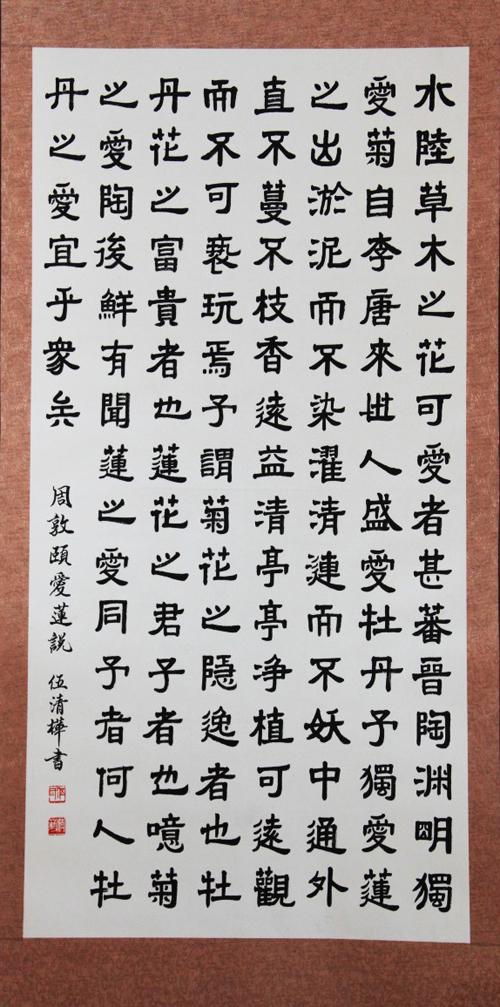 水陸草木之花可愛者甚蕃晉陶渊明獨
愛菊自李唐來世人盛愛牡丹予獨愛蓮
之出淤泥而不染濯清漣而不妖中通外
直不蔓不枝香遠益清亭亭净植可遠觀
而不可褻玩焉予謂菊花之隱逸者也牡
丹花之富貴者也蓮花之君子者也噫菊
之愛陶後鮮有聞蓮之愛同予者何人牡
丹之愛宜乎衆矣
周敦頤愛蓮説 伍清樺書